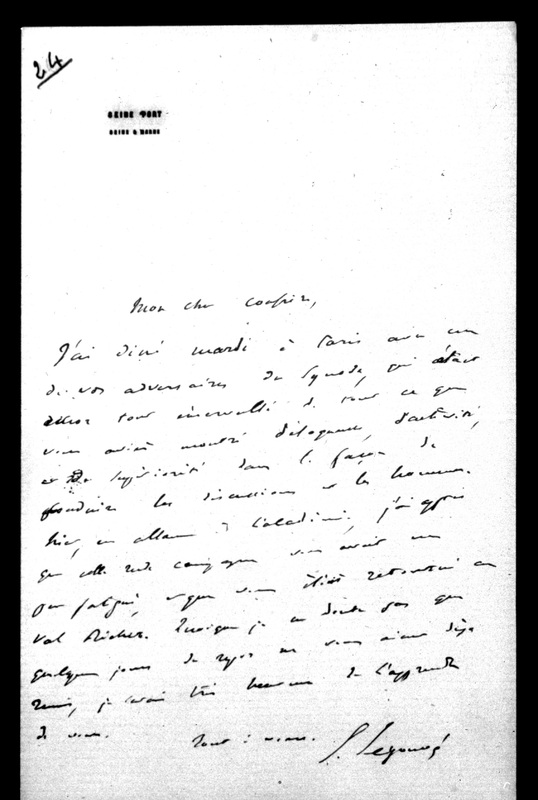 24
SEINE PORT
SEINE & MARNE
Mon cher confrère,
J'ai diné mardi à Paris avec un
de vos adversaires du Synode, qui était
encore tout émerveillé de tout ce que
vous aviez montré d'éloquence, d'activité,
et de supériorité dans la façon de
conduire les discussions et les hommes.
Hier, en allant à l'académie, j'ai appris
que cette rude campagne vous avait un
peu fatigué, et que vous étiez retourné au
Val Richer. Quoique je ne doute pas que
quelques jours de repos ne vous aient déjà
remis, je serais très heureux de l'apprendre
de vous.
Tout à vous. E. Legouvé